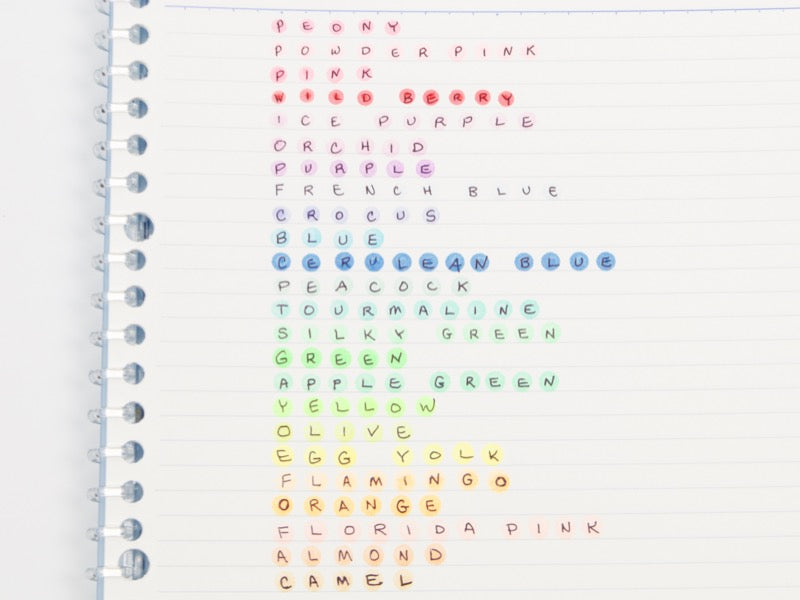 PEONY
POWDER PINK
PINK
WILD BERRY
ICE PURPLE
ORCHID
PURPLE
FRENCH BLUE
CROCUS
BLUE
CERULEAN BLUE
PEACOCK
TOURMALINE
SILKY GREEN
GREEN
APPLE GREEN
YELLOW
OLIVE
EGG YOLK
FLAMINGO
ORANGE
FLORIDA PINK
ALMOND
CAMEL